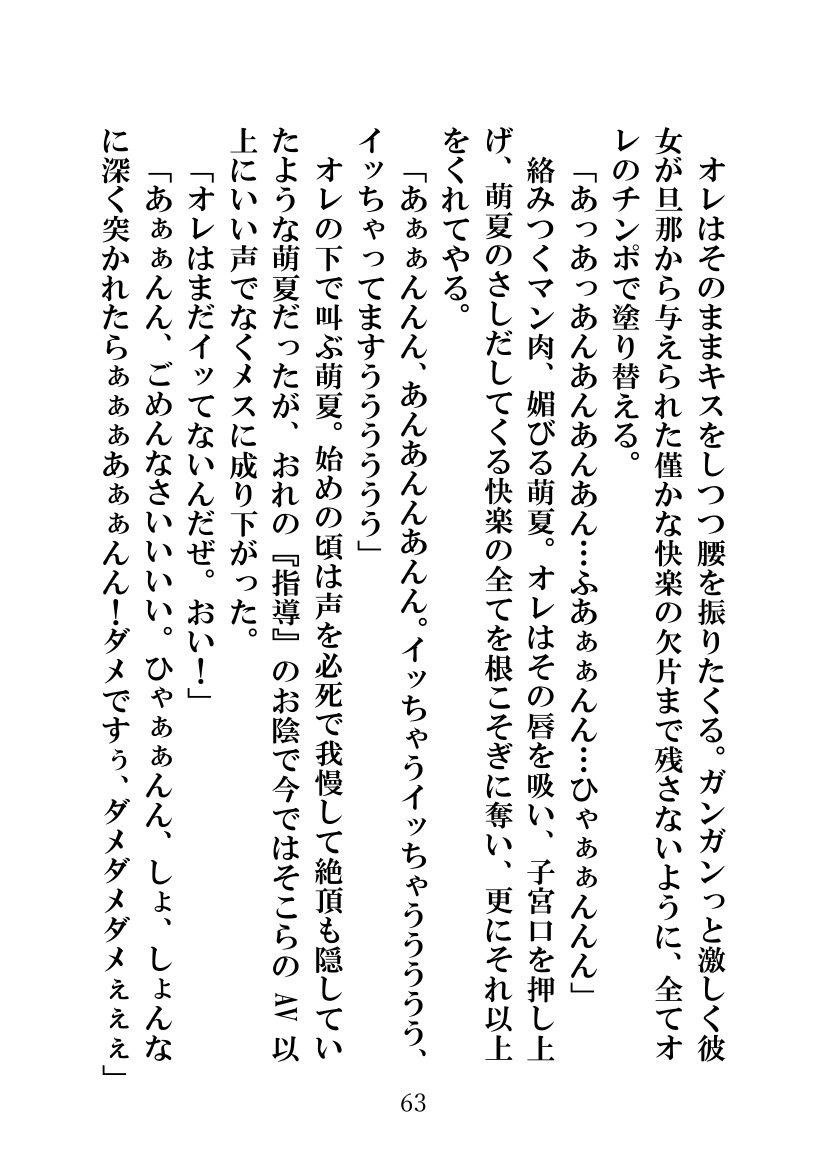 オレはそのままキスをしつつ腰を振りたくる。ガンガンっと激しく彼
女が旦那から与えられた僅かな快楽の欠片まで残さないように、全てオ
レのチンポで塗り替える。
「あっあっあんあんあんあん…ふあぁぁんん…ひゃぁぁんんん」
絡みつくマン肉、媚びる萌夏。オレはその唇を吸い、子宮口を押し上
げ、萌夏のさしだしてくる快楽の全てを根こそぎに奪い、更にそれ以上
をくれてやる。
「あぁぁんんん、あんあんんあんん。イッちゃうイッちゃううううう、
イッちゃってますうううううう」
オレの下で叫ぶ萌夏。始めの頃は声を必死で我慢して絶頂も隠してい
たような萌夏だったが、おれの『指導』のお陰で今ではそこらの AV 以
上にいい声でなくメスに成り下がった。
「オレはまだイッてないんだぜ。おい！」
「あぁぁんん、ごめんなさいいいい。ひゃぁぁんん、しょ、しょんな
に深く突かれたらぁぁぁあぁぁんん！ダメですぅ、ダメダメダメぇぇぇ」
63